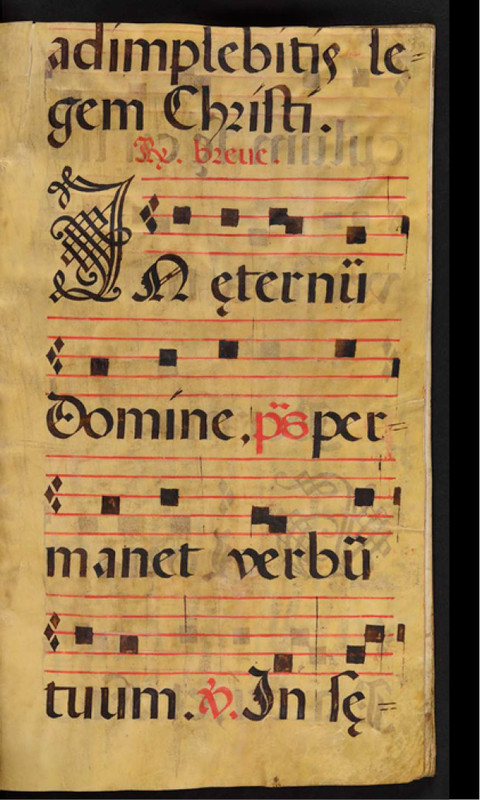 adimplebitis le=
gem Christi.
℟. breue.
IN ęternū
Domine, p̄s per=
manet verbū
tuum. ℣. In sę=